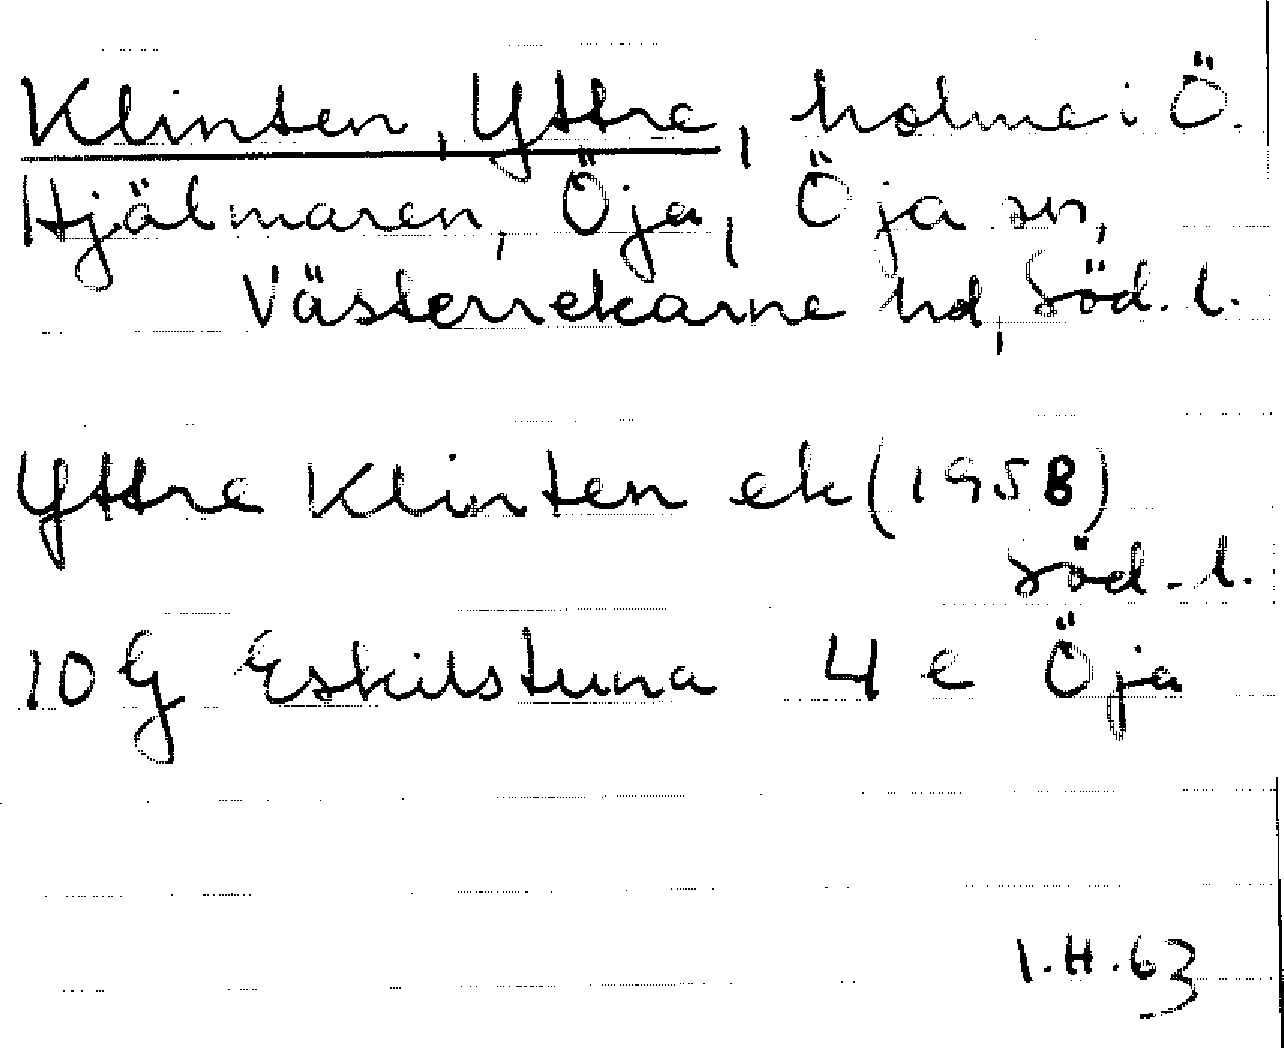 Klinten, Yttre, holme i Ö.
Hjälmaren, Öja, Öja sn,
Västerrekarne hd, Söd. l.
Yttre Klinten ek (1958)
Söd. l.
10 G Eskilstuna 4 e Öja
I.H.63